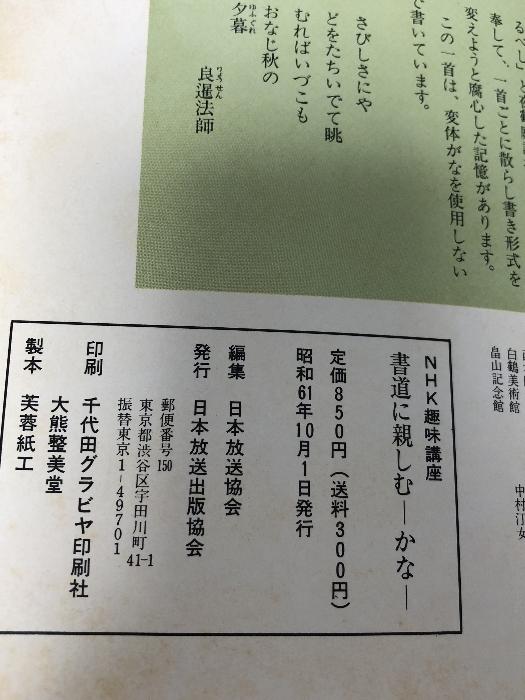 奉して、一首ごとに散らし書き形式を
変えようと腐心した記憶があります。
この一首は、変体がなを使用しない
で書いています。
さびしさにや
どをたちいでて眺
むればいづこも
おなじ秋の
夕暮
ゆふぐれ
良暹法師
りょうぜん
白鶴美術館
畠山記念館
中村汀女
NHK趣味講座
書道に親しむ―かな―
定価850円(送料300円)
昭和61年10月1日発行
編集 日本放送協会
発行 日本放送出版協会
郵便番号150
東京都渋谷区宇田川町41-1
振替東京1-49701
印刷 千代田グラビヤ印刷社
大熊整美堂
製本 芙蓉紙工